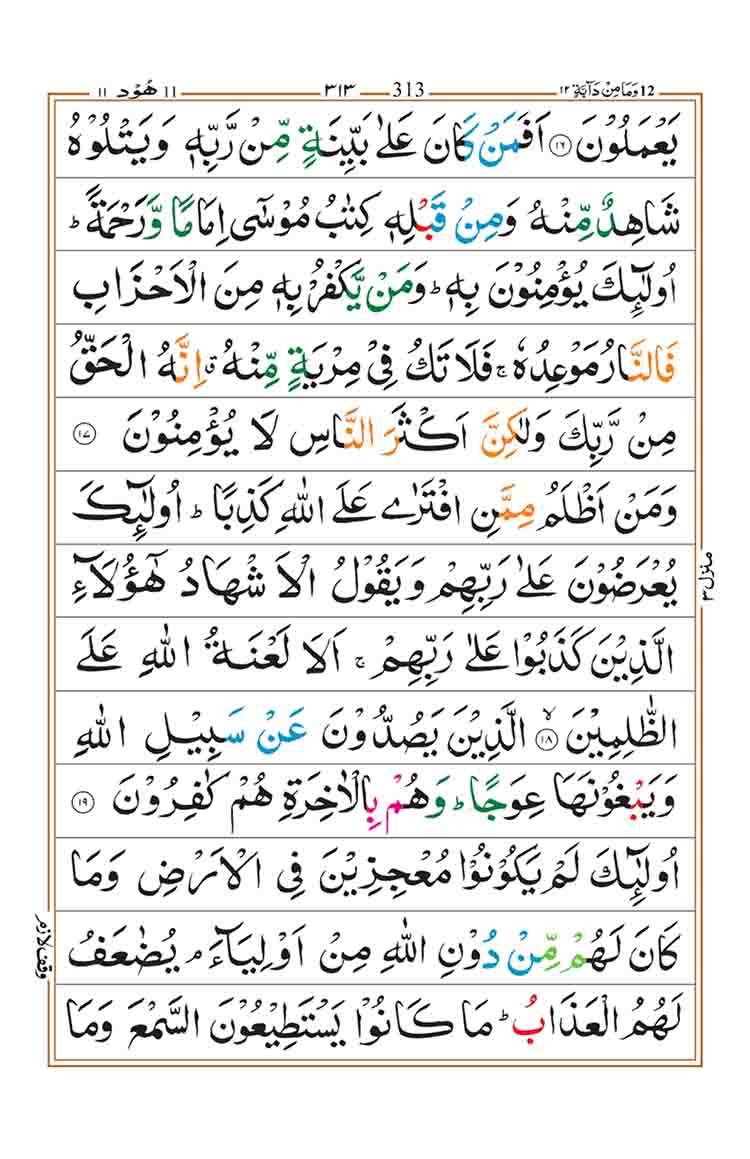 12 وَمَا مِنْ دَآبَّةٍ ۱۲ 313 ۳۱۳ 11 هُوْد ۱۱
يَعْمَلُوْنَ ۝۱۶ اَفَمَنْ كَانَ عَلٰى بَيِّنَةٍ مِّنْ رَّبِّهٖ وَيَتْلُوْهُ
شَاهِدٌ مِّنْهُ وَمِنْ قَبْلِهٖ كِتٰبُ مُوْسٰٓى اِمَامًا وَّرَحْمَةً ؕ
اُولٰٓئِكَ يُؤْمِنُوْنَ بِهٖ ؕ وَمَنْ يَّكْفُرْ بِهٖ مِنَ الْاَحْزَابِ
فَالنَّارُ مَوْعِدُهٗ ۚ فَلَا تَكُ فِىْ مِرْيَةٍ مِّنْهُ ۗ اِنَّهُ الْحَقُّ
مِنْ رَّبِّكَ وَلٰكِنَّ اَكْثَرَ النَّاسِ لَا يُؤْمِنُوْنَ ۝۱۷
وَمَنْ اَظْلَمُ مِمَّنِ افْتَرٰى عَلَى اللّٰهِ كَذِبًا ؕ اُولٰٓئِكَ
يُعْرَضُوْنَ عَلٰى رَبِّهِمْ وَيَقُوْلُ الْاَشْهَادُ هٰٓؤُلَآءِ
الَّذِيْنَ كَذَبُوْا عَلٰى رَبِّهِمْ ۚ اَلَا لَعْنَةُ اللّٰهِ عَلَى
الظّٰلِمِيْنَ ۙ۝۱۸ الَّذِيْنَ يَصُدُّوْنَ عَنْ سَبِيْلِ اللّٰهِ
وَيَبْغُوْنَهَا عِوَجًا ؕ وَهُمْ بِالْاٰخِرَةِ هُمْ كٰفِرُوْنَ ۝۱۹
اُولٰٓئِكَ لَمْ يَكُوْنُوْا مُعْجِزِيْنَ فِى الْاَرْضِ وَمَا
كَانَ لَهُمْ مِّنْ دُوْنِ اللّٰهِ مِنْ اَوْلِيَآءَ ۘ يُضٰعَفُ
لَهُمُ الْعَذَابُ ؕ مَا كَانُوْا يَسْتَطِيْعُوْنَ السَّمْعَ وَمَا
منزل ۳
وقف لازم